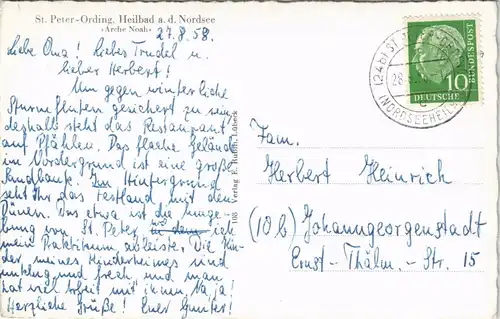 St. Peter-Ording, Heilbad a. d. Nordsee
›Arche Noah‹
27.8.58.
Liebe Oma! Liebes Trudel u.
lieber Herbert!
Um gegen winterliche
Sturmfluten gesichert zu sein
deshalb steht das Restaurant
auf Pfählen. Das flache Gelände
im Vordergrund ist eine große
Sandbank. Im Hintergrund
seht Ihr das Festland mit den
Dünen. Das etwa ist die Umge-
bung von St. Peter, in dem ich
mein Praktikum ableiste. Die Kin-
der meines Kinderheimes sind
unklug und frech und man
hat viel Arbeit mit ihnen. Na ja!
Herzliche Grüße! Euer Günter!
103 Verlag E. Lübeck
(24b) ST.
28.
(NORDSEEHEIL
c
10
DEUTSCHE
BUNDESPOST
Fam.
Herbert Heinrich
(10b) Johanngeorgenstadt
Ernst-Thälm.-Str. 15